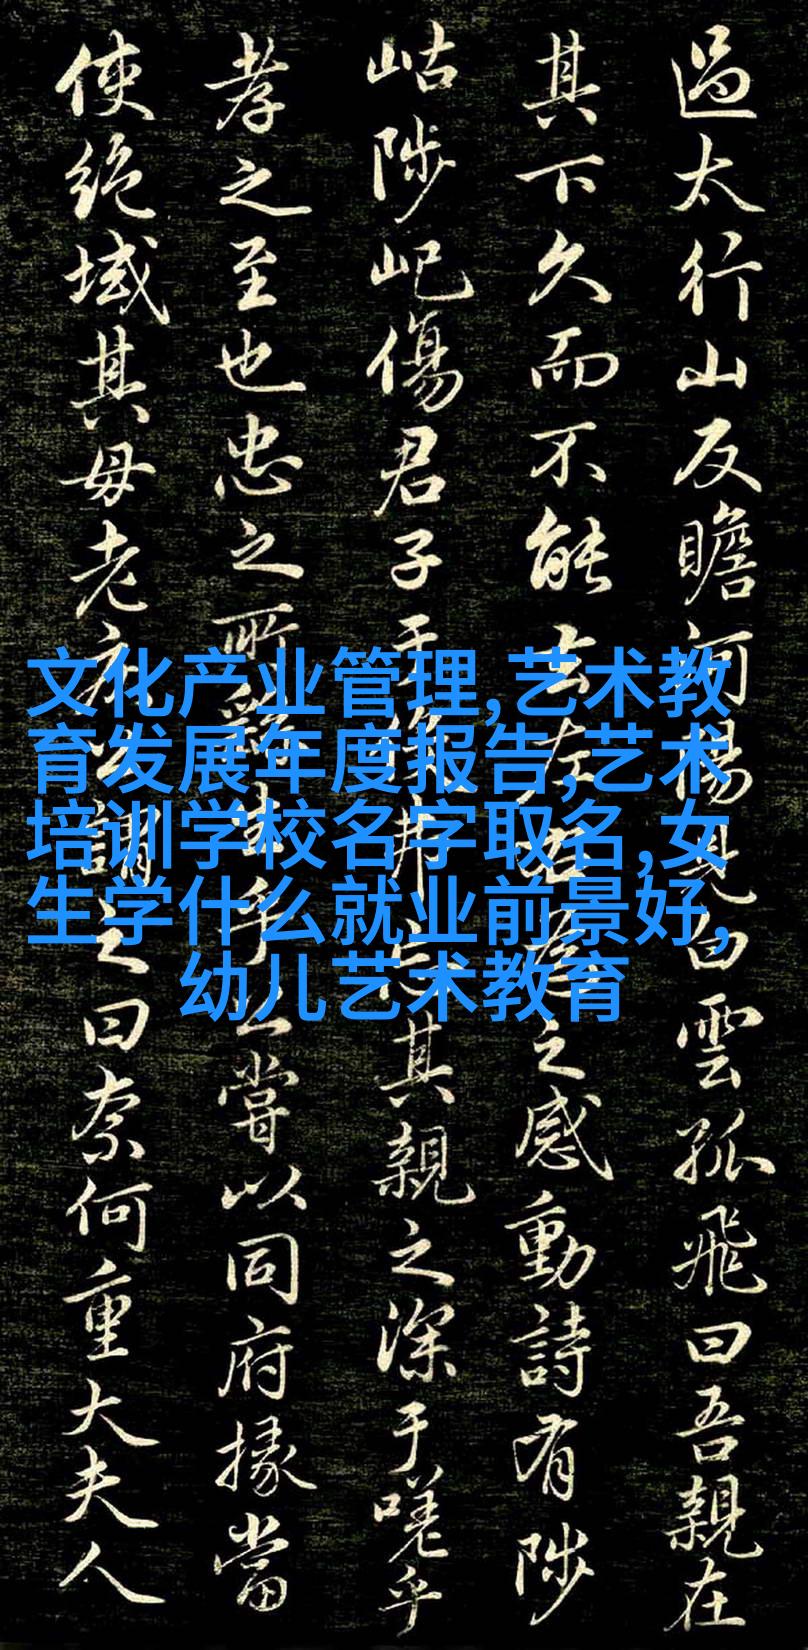 過太行山反瞻河陽見白雲孤飛曰吾親在
其下久而不能去左右爲之感動詩有陟
岵陟屺傷君子于役弗忘其親之深于嗟乎
孝之至也忠之所繇生乎公嘗以同府掾當
使絕域其母老疾公謂之曰奈何重大夫人
文化产业管理,艺术教
育发展年度报告,艺术
培训学校名字取名,女
生学什么就业前景好,
幼儿艺术教育